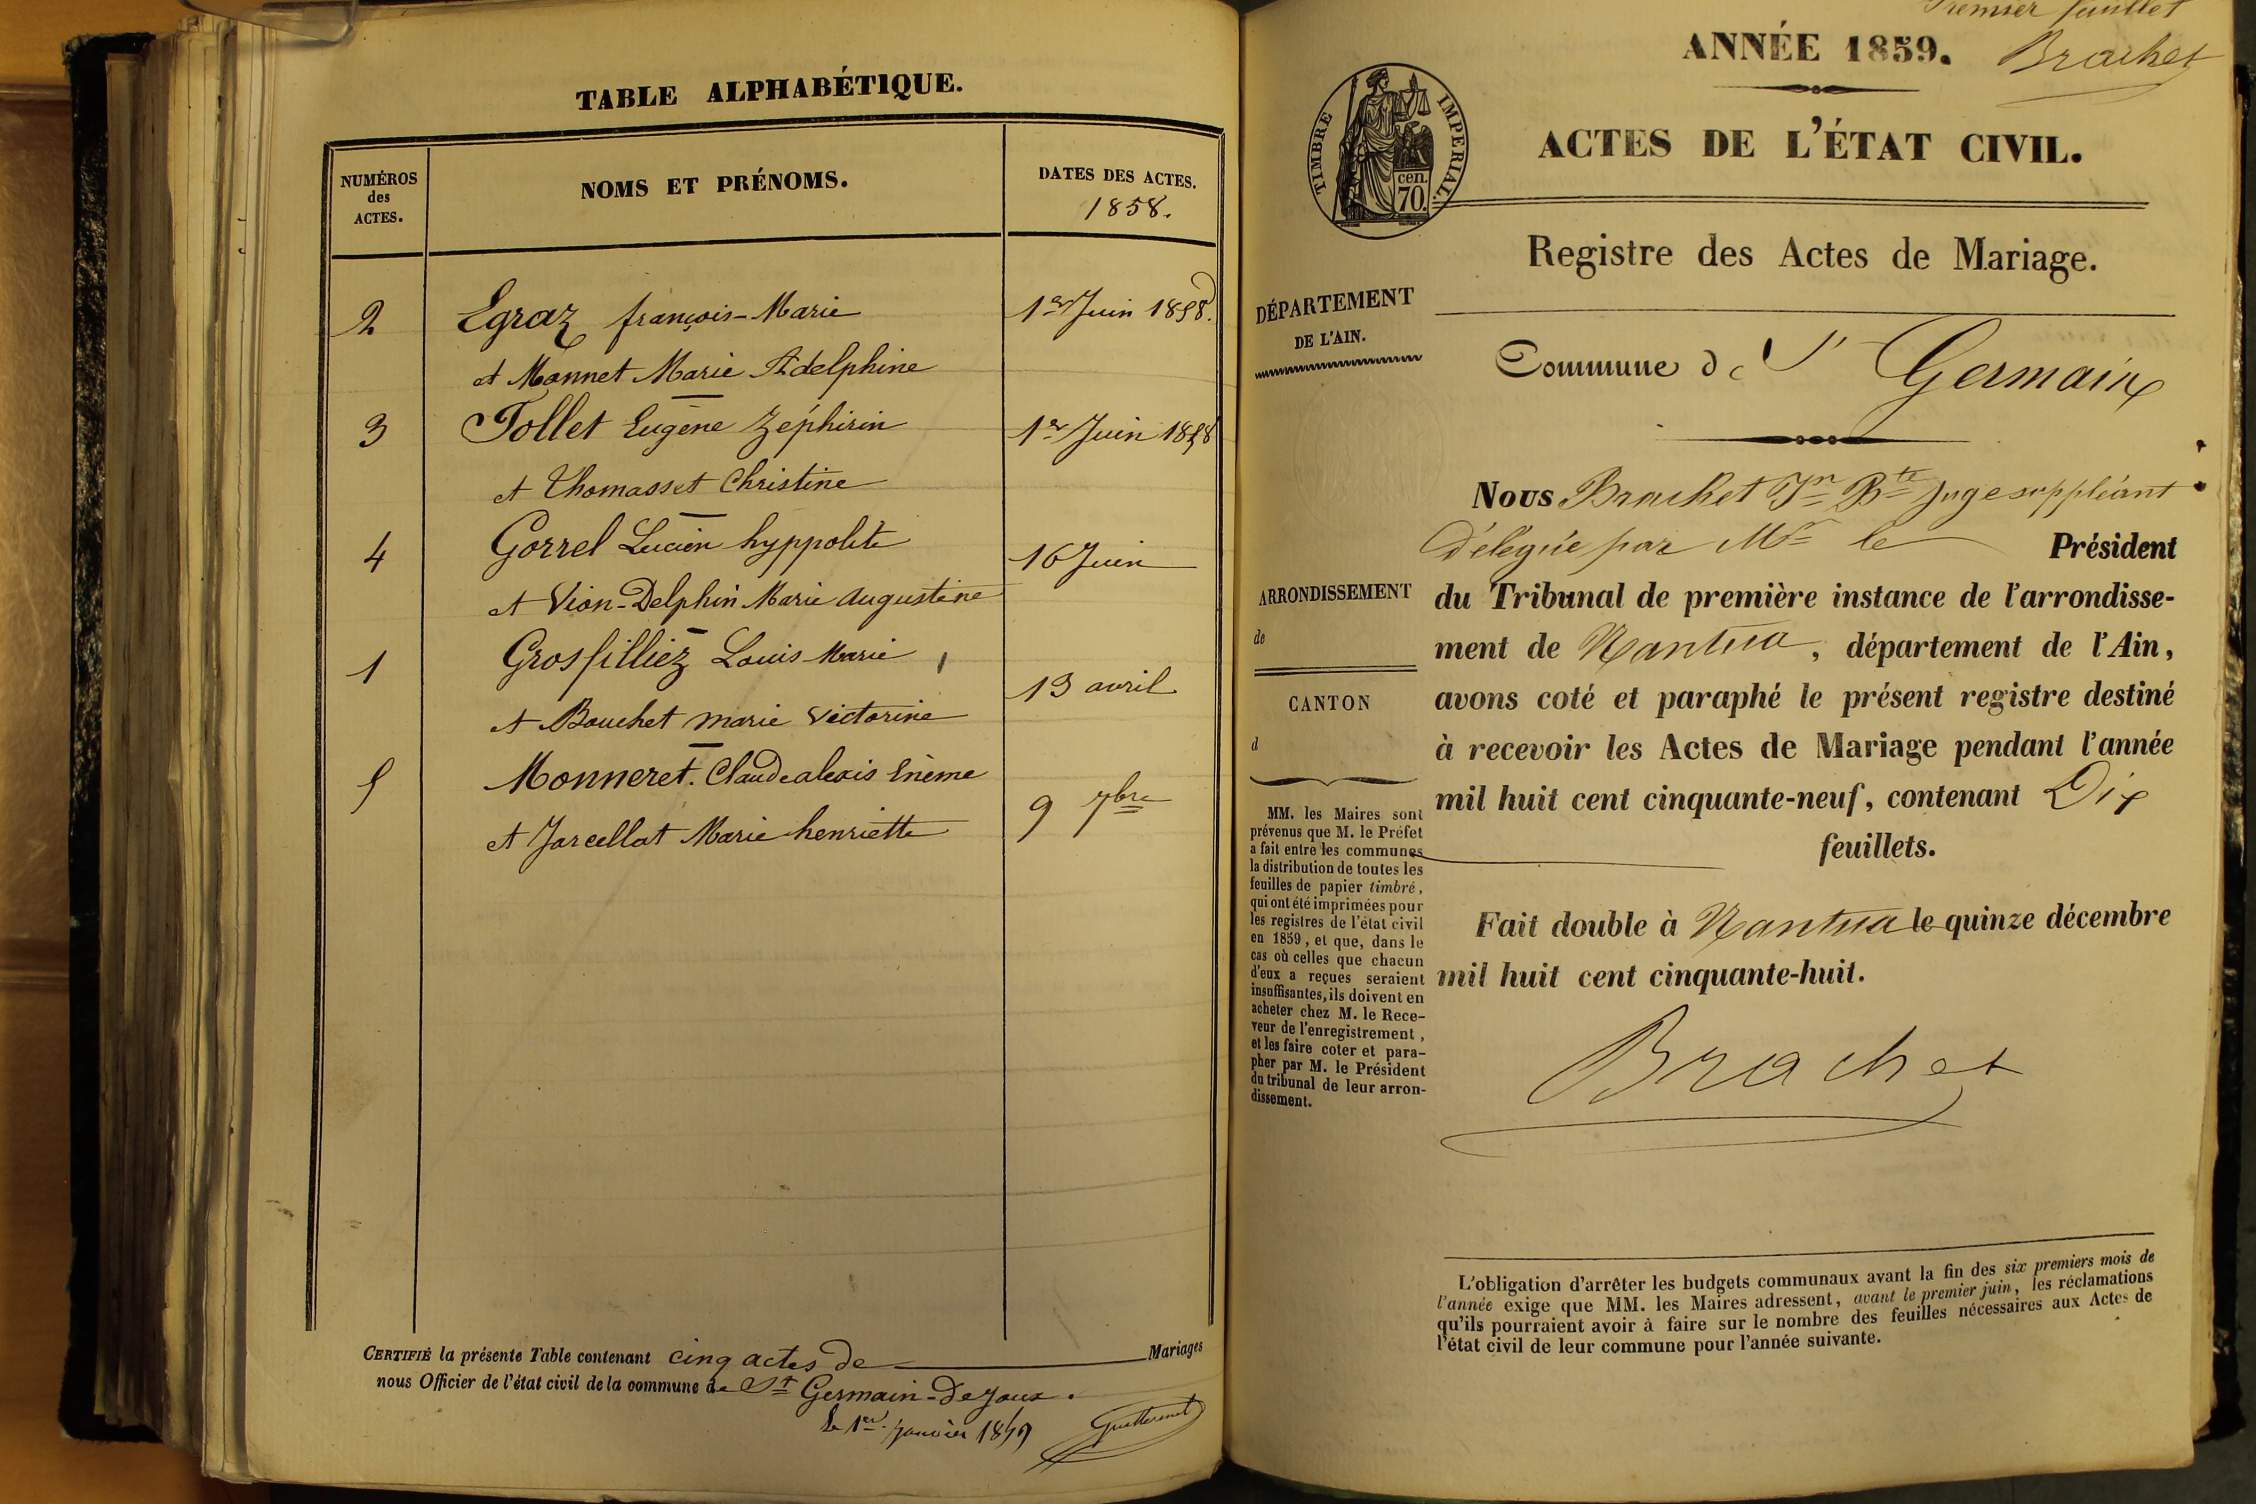 TABLE ALPHABÉTIQUE.
NUMÉROS
des
ACTES.
NOMS ET PRÉNOMS.
DATES DES ACTES.
1858.
2 Egraz françois-Marie 1er Juin 1858.
et Monnet Marie Adelphine
3 Tollet Eugène Zéphirin 1er Juin 1858
et Thomasset Christine
4 Gorrel Lucien hyppolite 16 Juin
et Vion-Delphin Marie Augustine
1 Grosfilliez Louis Marie
13 avril
et Bouchet marie Victorine
5 Monneret Claude alexis
9 7bre
et Jarcellat Marie henriette
CERTIFIÉ la présente Table contenant cinq actes de Mariages
nous Officier de l'état civil de la commune de St Germain-De Joux.
le 1er janvier 1859
Premier feuillet
ANNÉE 1859. Brachet
TIMBRE IMPERIAL.
cen.
70.
ACTES DE L'ÉTAT CIVIL.
Registre des Actes de Mariage.
DÉPARTEMENT
DE L'AIN.
Commune de St Germain
ARRONDISSEMENT
de
CANTON
d
MM. les Maires sont
prévenus que M. le Préfet
a fait entre les communes
la distribution de toutes les
feuilles de papier timbré,
qui ont été imprimées pour
les registres de l'état civil
en 1859, et que, dans le
cas où celles que chacun
d'eux a reçues seraient
insuffisantes, ils doivent en
acheter chez M. le Rece-
veur de l'enregistrement,
et les faire coter et para-
pher par M. le Président
du tribunal de leur arron-
dissement.
Nous Brachet Jn Bte Juge suppléant
délégué par Mr le Président
du Tribunal de première instance de l'arrondisse-
ment de Nantua, département de l'Ain,
avons coté et paraphé le présent registre destiné
à recevoir les Actes de Mariage pendant l'année
mil huit cent cinquante-neuf, contenant Dix
feuillets.
Fait double à Nantua le quinze décembre
mil huit cent cinquante-huit.
Brachet
L'obligation d'arrêter les budgets communaux avant la fin des six premiers mois de
l'année exige que MM. les Maires adressent, avant le premier juin, les réclamations
qu'ils pourraient avoir à faire sur le nombre des feuilles nécessaires aux Actes de
l'état civil de leur commune pour l'année suivante.